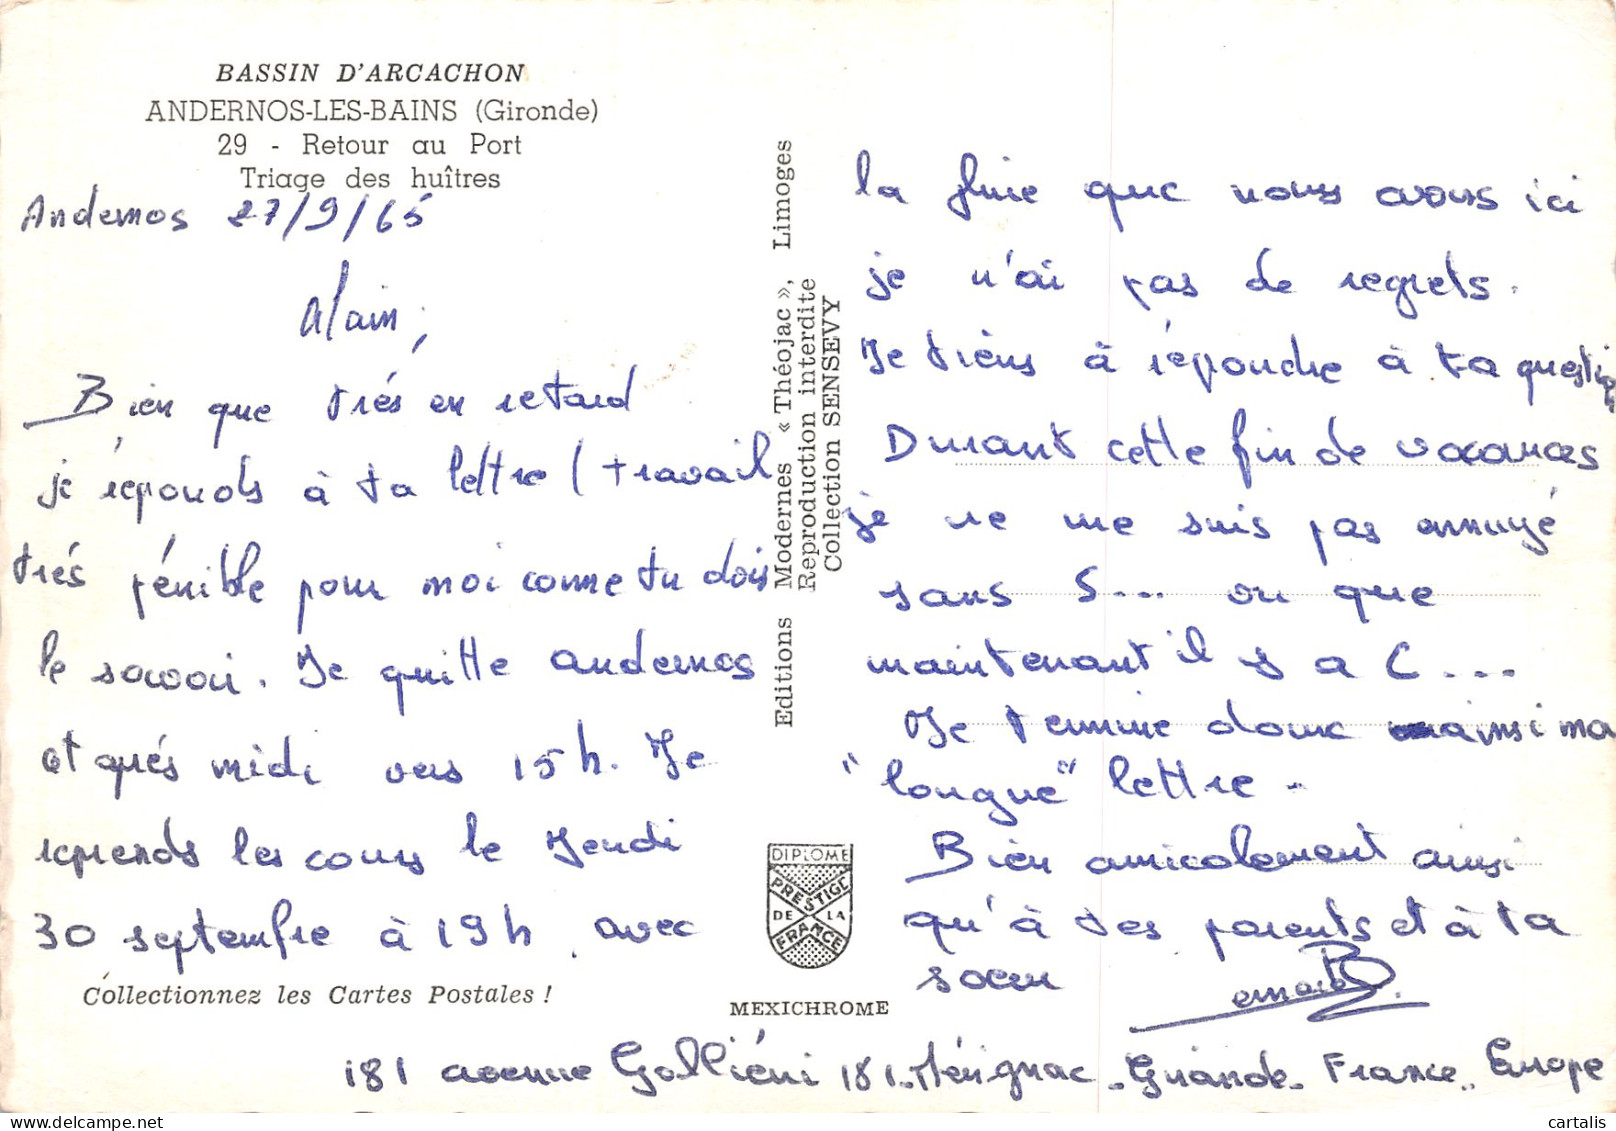 BASSIN D'ARCACHON
ANDERNOS-LES-BAINS (Gironde)
29 - Retour au Port
Triage des huîtres
Andernos 27/9/65
Alain,
Bien que très en retard
je réponds à ta lettre (travail
très pénible pour moi comme tu dois
le savoir. Je quitte andernos
cet après midi vers 15h. Je
reprends les cours le Jeudi
30 septembre à 19h, avec
Collectionnez les Cartes Postales !
Editions Modernes « Théojac », Limoges
Reproduction interdite
Collection SENSEVY
DIPLOME
PRESTIGE
DE LA
FRANCE
MEXICHROME
la pluie que nous avons ici
je n'ai pas de regrets.
Je tiens à répondre à ta question
Durant cette fin de vacances
je ne me suis pas ennuyé
sans S... ou que
maintenant il y a C...
Je termine donc ainsi ma
"longue" lettre.
Bien amicalement ainsi
qu'à tes parents et à ta
soeur Bernard
181 avenue Galliéni 181. Mérignac - Gironde - France - Europe
cartalis